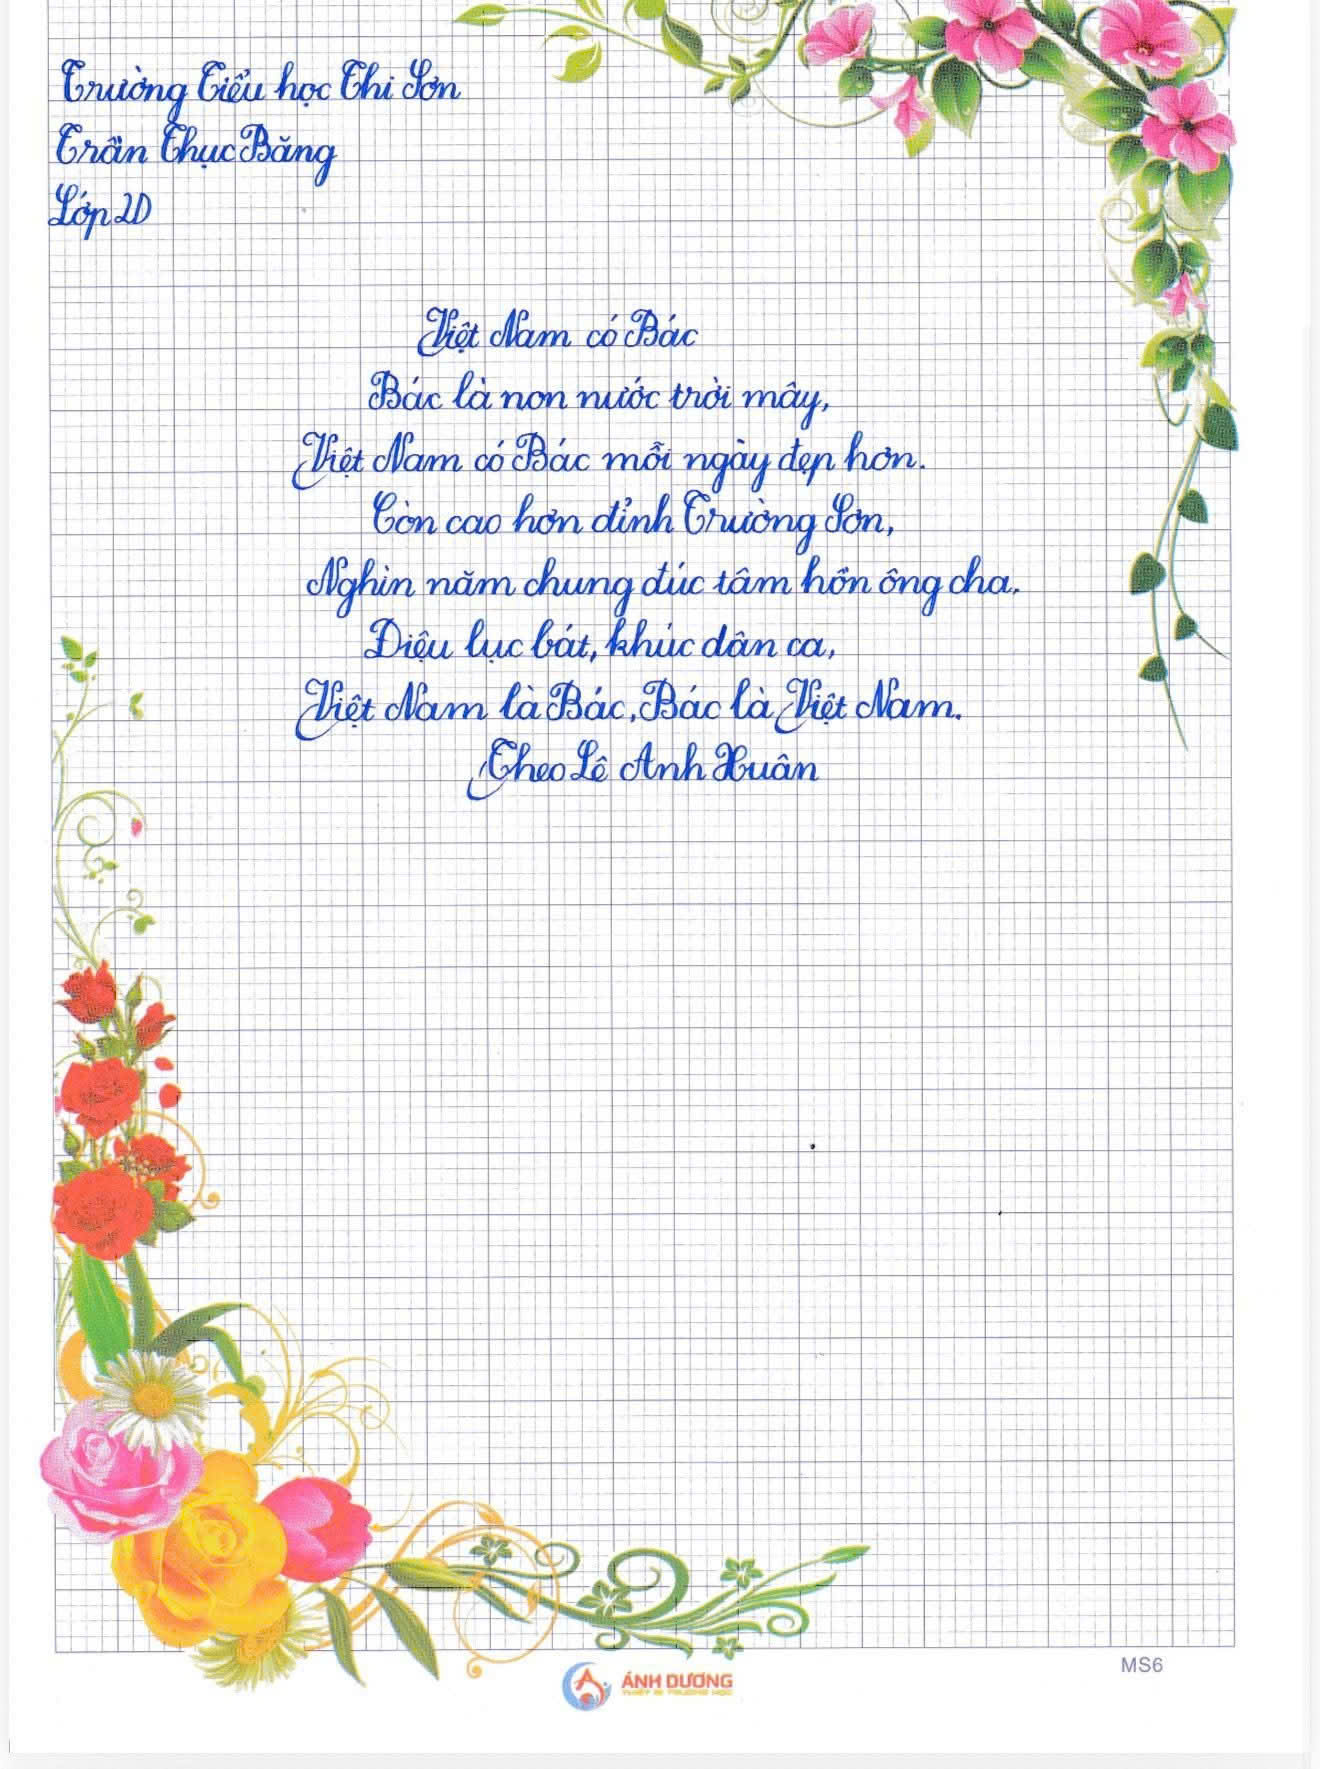 Trường Tiểu học Thi Sơn
Trần Thục Băng
Lớp 2D
Việt Nam có Bác
Bác là non nước trời mây,
Việt Nam có Bác mỗi ngày đẹp hơn.
Còn cao hơn đỉnh Trường Sơn,
Nghìn năm chung đúc tâm hồn ông cha.
Điệu lục bát, khúc dân ca,
Việt Nam là Bác, Bác là Việt Nam.
Theo Lê Anh Xuân
MS6
ÁNH DƯƠNG
THIẾT BỊ TRƯỜNG HỌC